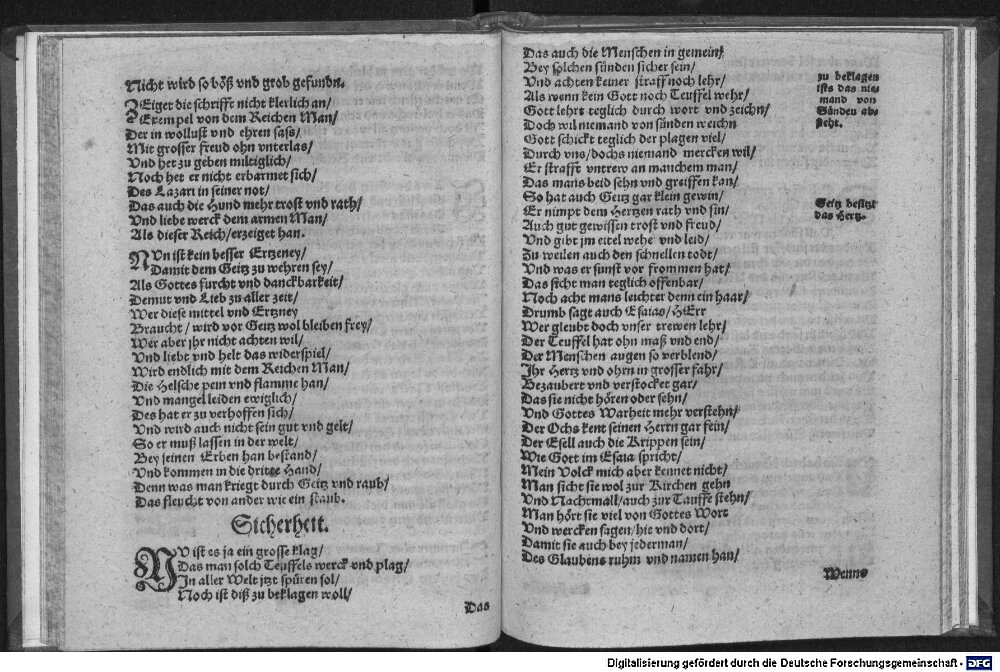 Nicht wird so böß vnd grob gefundn.
ZEiget die schrifft nicht klerlich an/
Exempel von dem Reichen Man/
Der in wollust vnd ehren sass/
Mit grosser freud ohn vnterlas/
Vnd het zu geben miltiglich/
Noch het er nicht erbarmet sich/
Des Lazari in seiner not/
Das auch die Hund mehr trost vnd rath/
Vnd liebe werck dem armen Man/
Als dieser Reich/erzeiget han.
NVn ist kein besser Ertzeney/
Damit dem Geitz zu wehren sey/
Als Gottes furcht vnd danckbarkeit/
Demut vnd Lieb zu aller zeit/
Wer diese mittel vnd Ertzney
Braucht/ wird vor Geitz wol bleiben frey/
Wer aber jhr nicht achten wil/
Vnd liebt vnd helt das widerspiel/
Wird endlich mit dem Reichen Man/
Die Helsche pein vnd flamme han/
Vnd mangel leiden ewiglich/
Des hat er zu verhoffen sich/
Vnd wird auch nicht sein gut vnd gelt/
So er muß lassen in der welt/
Bey seinen Erben han bestand/
Vnd kommen in die dritte Hand/
Denn was man kriegt durch Geitz vnd raub/
Das fleucht von ander wie ein staub.
Sicherheit.
NV ist es ja ein grosse klag/
Das man solch Teuffels werck vnd plag/
In aller Welt jtzt spüren sol/
Noch ist diß zu beklagen woll/
Das
Das auch die Menschen in gemein/
Bey solchen sünden sicher sein/
Vnd achten keiner straff noch lehr/
Als wenn kein Gott noch Teuffel wehr/
Gott lehrt teglich durch wort vnd zeichn/
Doch wil niemand von sünden weichn
Gott schickt teglich der plagen viel/
Durch vns/dochs niemand mercken wil/
Er strafft vntrew an manchem man/
Das mans beid sehn vnd greiffen kan/
So hat auch Geitz gar klein gewin/
Er nimpt dem Hertzen rath vnd sin/
Auch gut gewissen trost vnd freud/
Vnd gibt jm eitel wehe vnd leid/
Zu weilen auch den schnellen todt/
Vnd was er sunst vor frommen hat/
Das sicht man teglich offenbar/
Noch acht mans leichter denn ein haar/
Drumb sagt auch Esaias/HErr
Wer gleubt doch vnser trewen lehr/
Der Teuffel hat ohn maß vnd end/
Der Menschen augen so verblend/
Ihr Hertz vnd ohrn in grosser fahr/
Bezaubert vnd verstocket gar/
Das sie nicht hören oder sehn/
Vnd Gottes Warheit mehr verstehn/
Der Ochs kent seinen Herrn gar fein/
Der Esell auch die Krippen sein/
Wie Gott im Esaia spricht/
Mein Volck mich aber kennet nicht/
Man sicht sie wol zur Kirchen gehn
Vnd Nachtmall/auch zur Tauffe stehn/
Man hört sie viel von Gottes Wort
Vnd wercken sagen/hie vnd dort/
Damit sie auch bey jederman/
Des Glaubens ruhm vnd namen han/
Wenns
zu beklagen
ists das nie-
mand von
Sünden ab-
steht.
Geitz besitzt
das Hertz.
Digitalisierung gefördert durch die Deutsche Forschungsgemeinschaft - DFG